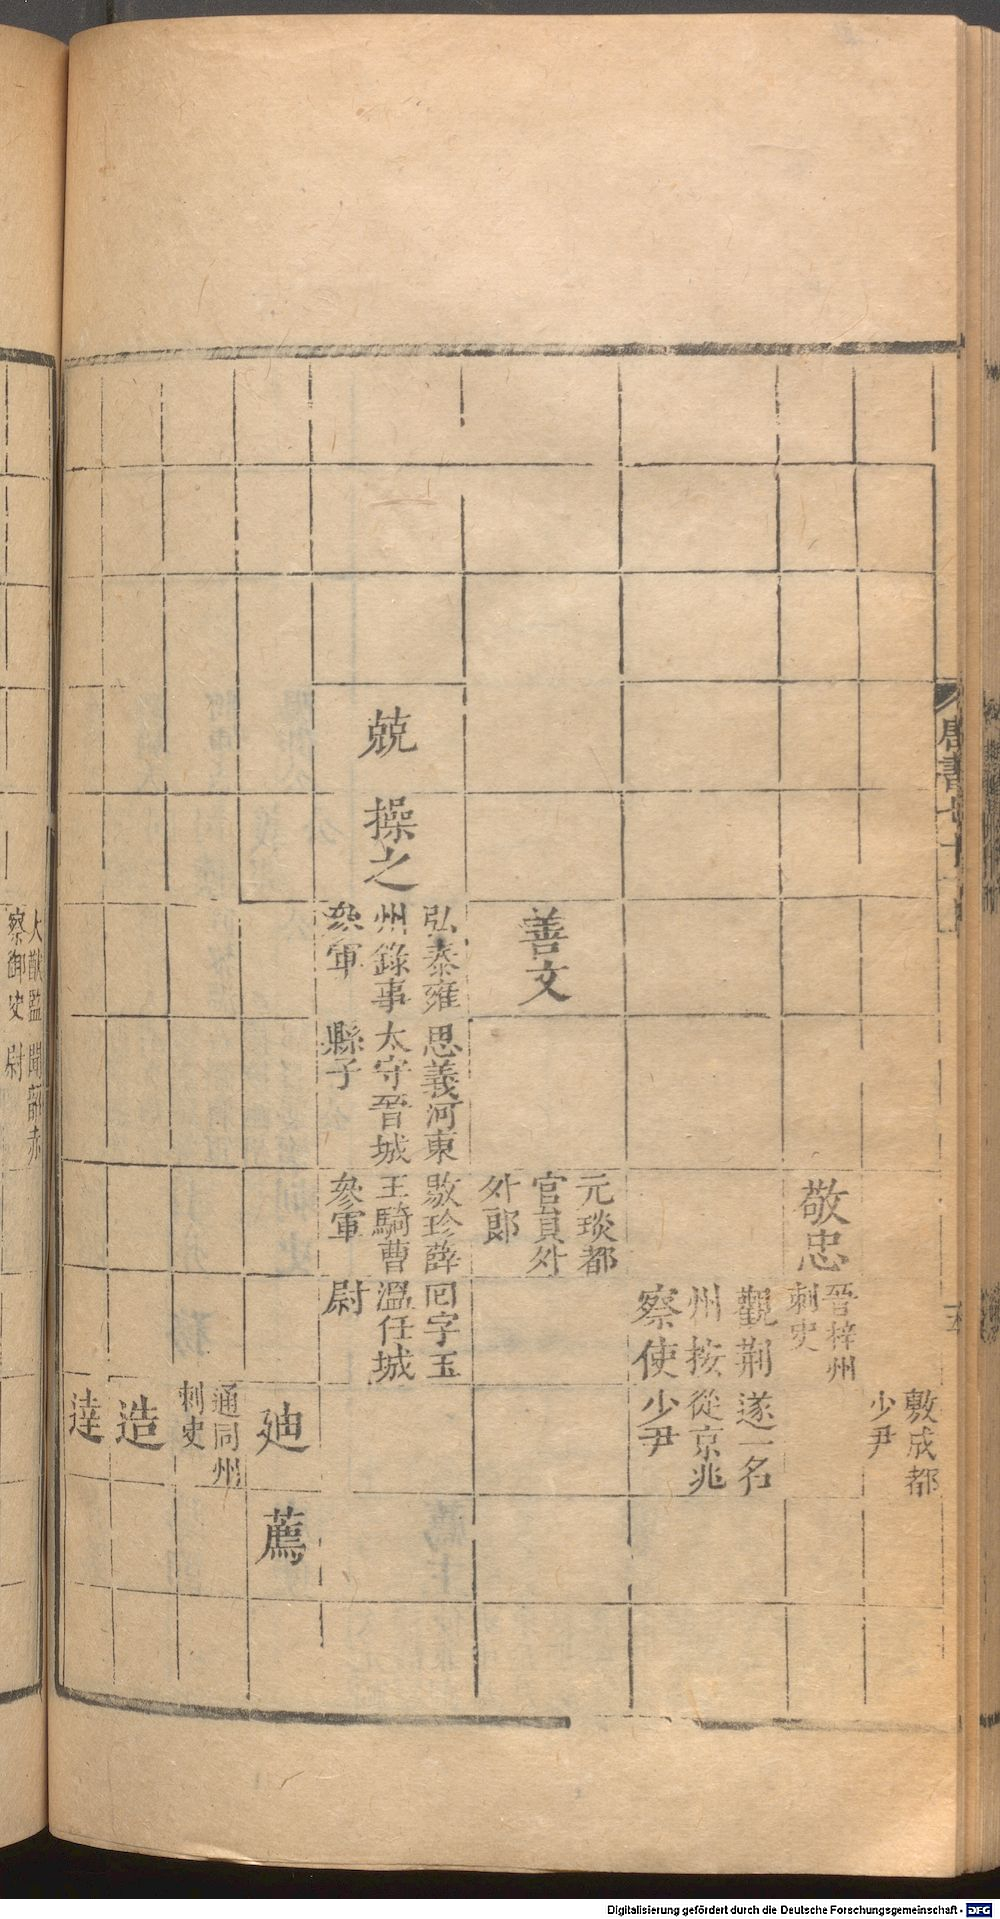 敷成都
少尹
敬忠
晉梓州
刺史
觀荆
州按
察使
遂一名
從京兆
少尹
善文
元琰都
官員外
外郎
兢
操之
弘泰雍
州錄事
參軍
思義河東
太守晉城
縣子
敭珍薛
王騎曹
參軍
回字玉
溫任城
尉
廸
薦
通同州
刺史
造
達
大猷監
察御史
聞韶赤
尉
Digitalisierung gefördert durch die Deutsche Forschungsgemeinschaft - DFG